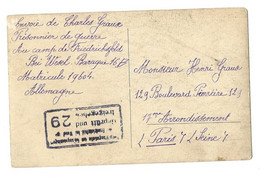 Envoie de Charles Graux
Prisonnier de guerre
Au camp de Friedrichsfeld
Bei Wesel Baraque 16B
Matricule 19604
Allemagne
Monsieur Henri Graux
129 Boulevard Pereire 129
17me Arrondissement
(Paris) (Seine)
29